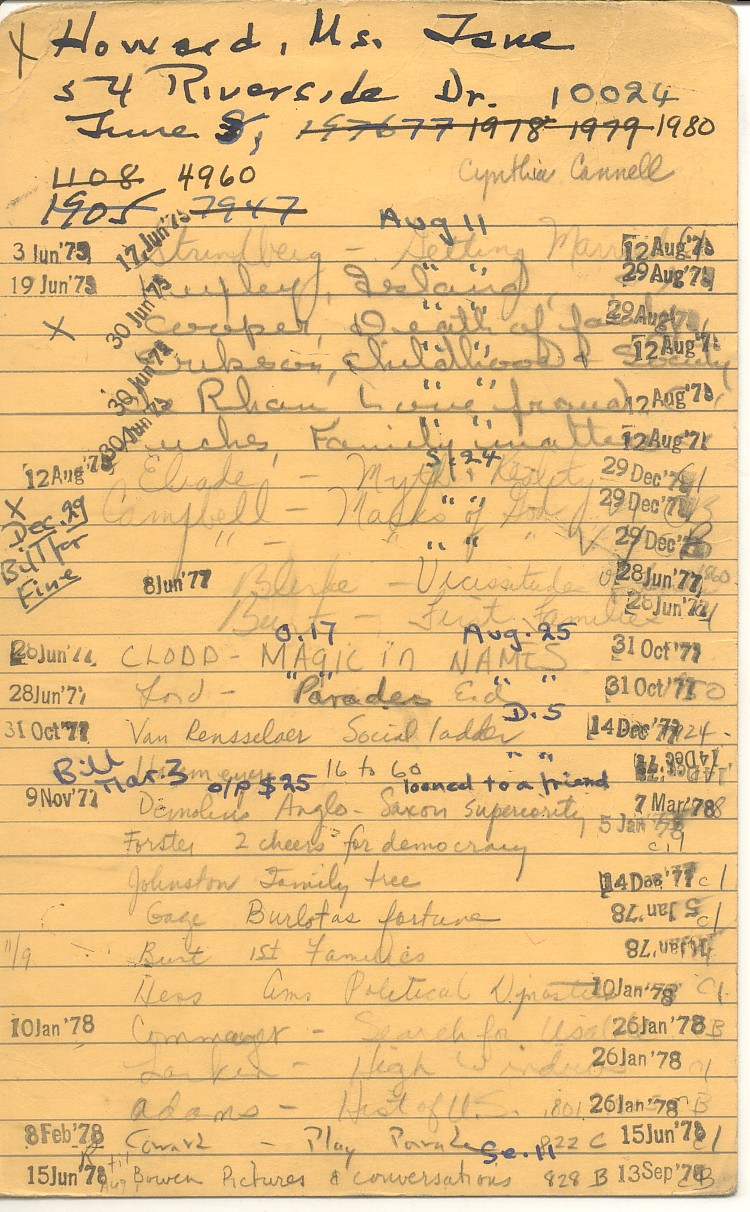 X Howard, Ms. Jane
54 Riverside Dr. 10024
June 8, 197677 1978 1979 1980
1108 4960 Cynthia Cannell
1905 7947
Aug 11
3 Jun'75 17 Jun'75 Strindberg - Getting Married 12 Aug'75
19 Jun'75 Huxley, Island, " " 29 Aug'75
X 30 Jun'75 Cooper, Death of family " " 29 Aug'75
30 Jun'75 Erikson, Childhood & Society " " 12 Aug'75
30 Jun'75 Rhan Love frauds " " 12 Aug'75
Family in " " 12 Aug'75
S. 24
12 Aug'75 Eliade, - Myth & Reality 29 Dec'75 C1
X Campbell - Masks of God " " 29 Dec'75
Dec. 29 " - " " " V. 29 Dec'75
Bill for
Fine
8 Jun'77 - Vicissitudes 28 Jun'77
Burt - First Families 28 Jun'77
O. 17 Aug. 25
28 Jun'77 CLODD - MAGIC in NAMES 31 Oct'77
28 Jun'77 Lord - Parades End " " 31 Oct'77
D. 5
31 Oct'77 Van Rensselaer Social ladder 14 Dec'77
16 to 60 " " 14 Dec'77
Bill Mar. 3 o/p $25 loaned to a friend
9 Nov'77 Demolins Anglo-Saxon superiority 7 Mar'78
Forster 2 cheers for democracy 5 Jan'78
Johnston Family tree 14 Dec'77 C1
Gage fortune 5 Jan'78 C1
11/9 Burt 1st Families Jan'78
Hess Ams Political Dynasties 10 Jan'78 C1
10 Jan'78 Commager - Search for Usable 26 Jan'78 B
Larkin - High Windows 26 Jan'78 C1
Adams - Hist of U.S. 26 Jan'78 B
8 Feb'78 Coward - Play Parade 822 C 15 Jun'78 C1
Se. 11
15 Jun'78 Bowen Pictures & conversations 828 B 13 Sep'78